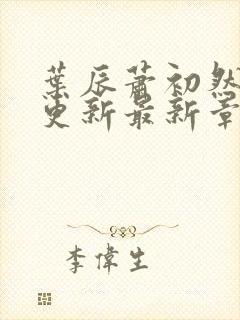 葉辰蕭初然
更新最新章
李偉生